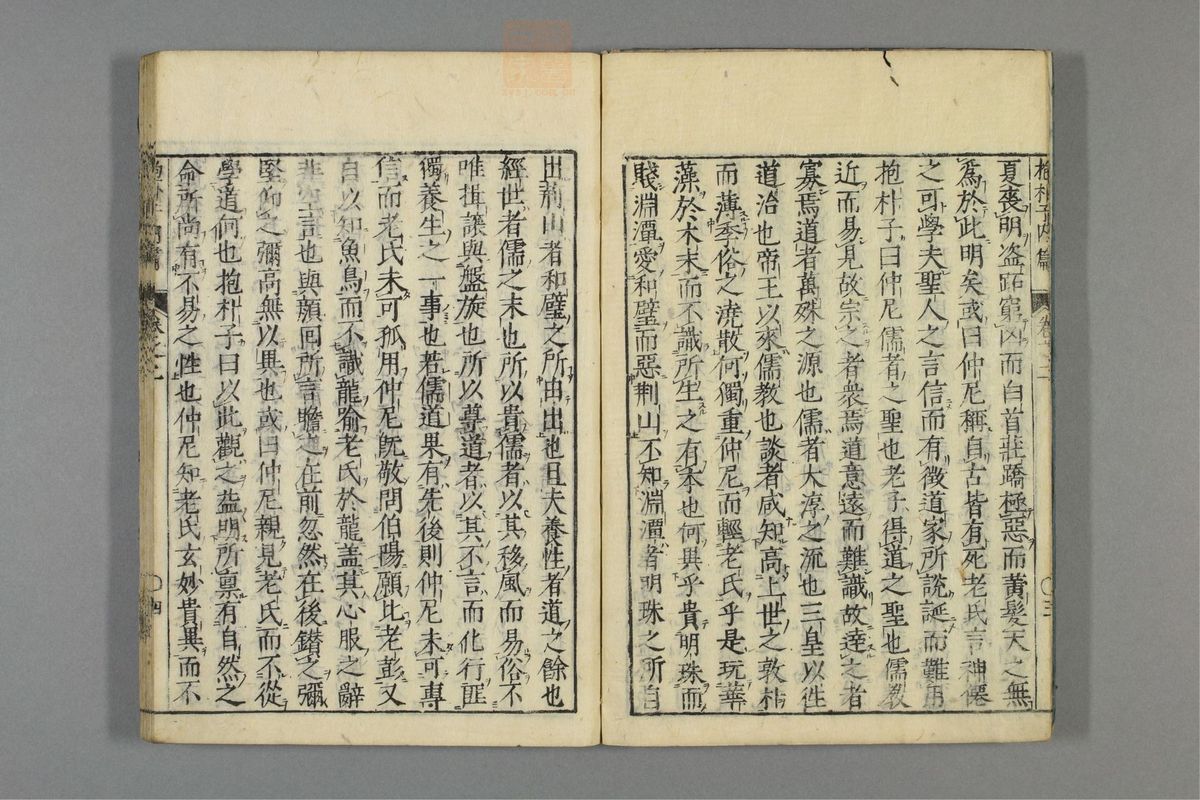 抱朴子内篇 卷之二 〇三
夏喪明盗跖窮凶而白首莊蹻極惡而黄髮天之無
爲於此明矣或曰仲尼稱自古皆有死老氏言神僊
之可學夫聖人之言信而有徴道家所說誕而難用
抱朴子曰仲尼儒者之聖也老子得道之聖也儒教
近而易見故宗之者衆焉道意遠而難識故逹之者
寡焉道者萬殊之源也儒者大淳之流也三皇以徃
道治也帝王以來儒教也談者咸知高上世之敦朴
而薄季俗之澆散何獨重仲尼而輕老氏乎是玩華
藻於木末而不識所生之有本也何異乎貴明珠而
賤淵潭愛和璧而惡荆山不知淵潭者明珠之所自
出荊山者和璧之所由出也且夫養性者道之餘也
經世者儒之末也所以貴儒者以其移風而易俗不
唯揖讓與盤旋也所以尊道者以其不言而化行匪
獨養生之一事也若儒道果有先後則仲尼未可專
信而老氏未可孤用仲尼旣敬問伯陽願比老彭又
自以知魚鳥而不識龍喻老氏於龍盖其心服之辭
非空言也與顔回所言瞻之在前忽然在後鑚之彌
堅仰之彌高無以異也或曰仲尼親見老氏而不從
學道何也抱朴子曰以此觀之益明所禀有自然之
命所尚有不易之性也仲尼知老氏玄妙貴異而不
抱朴子内篇 卷之二 〇四